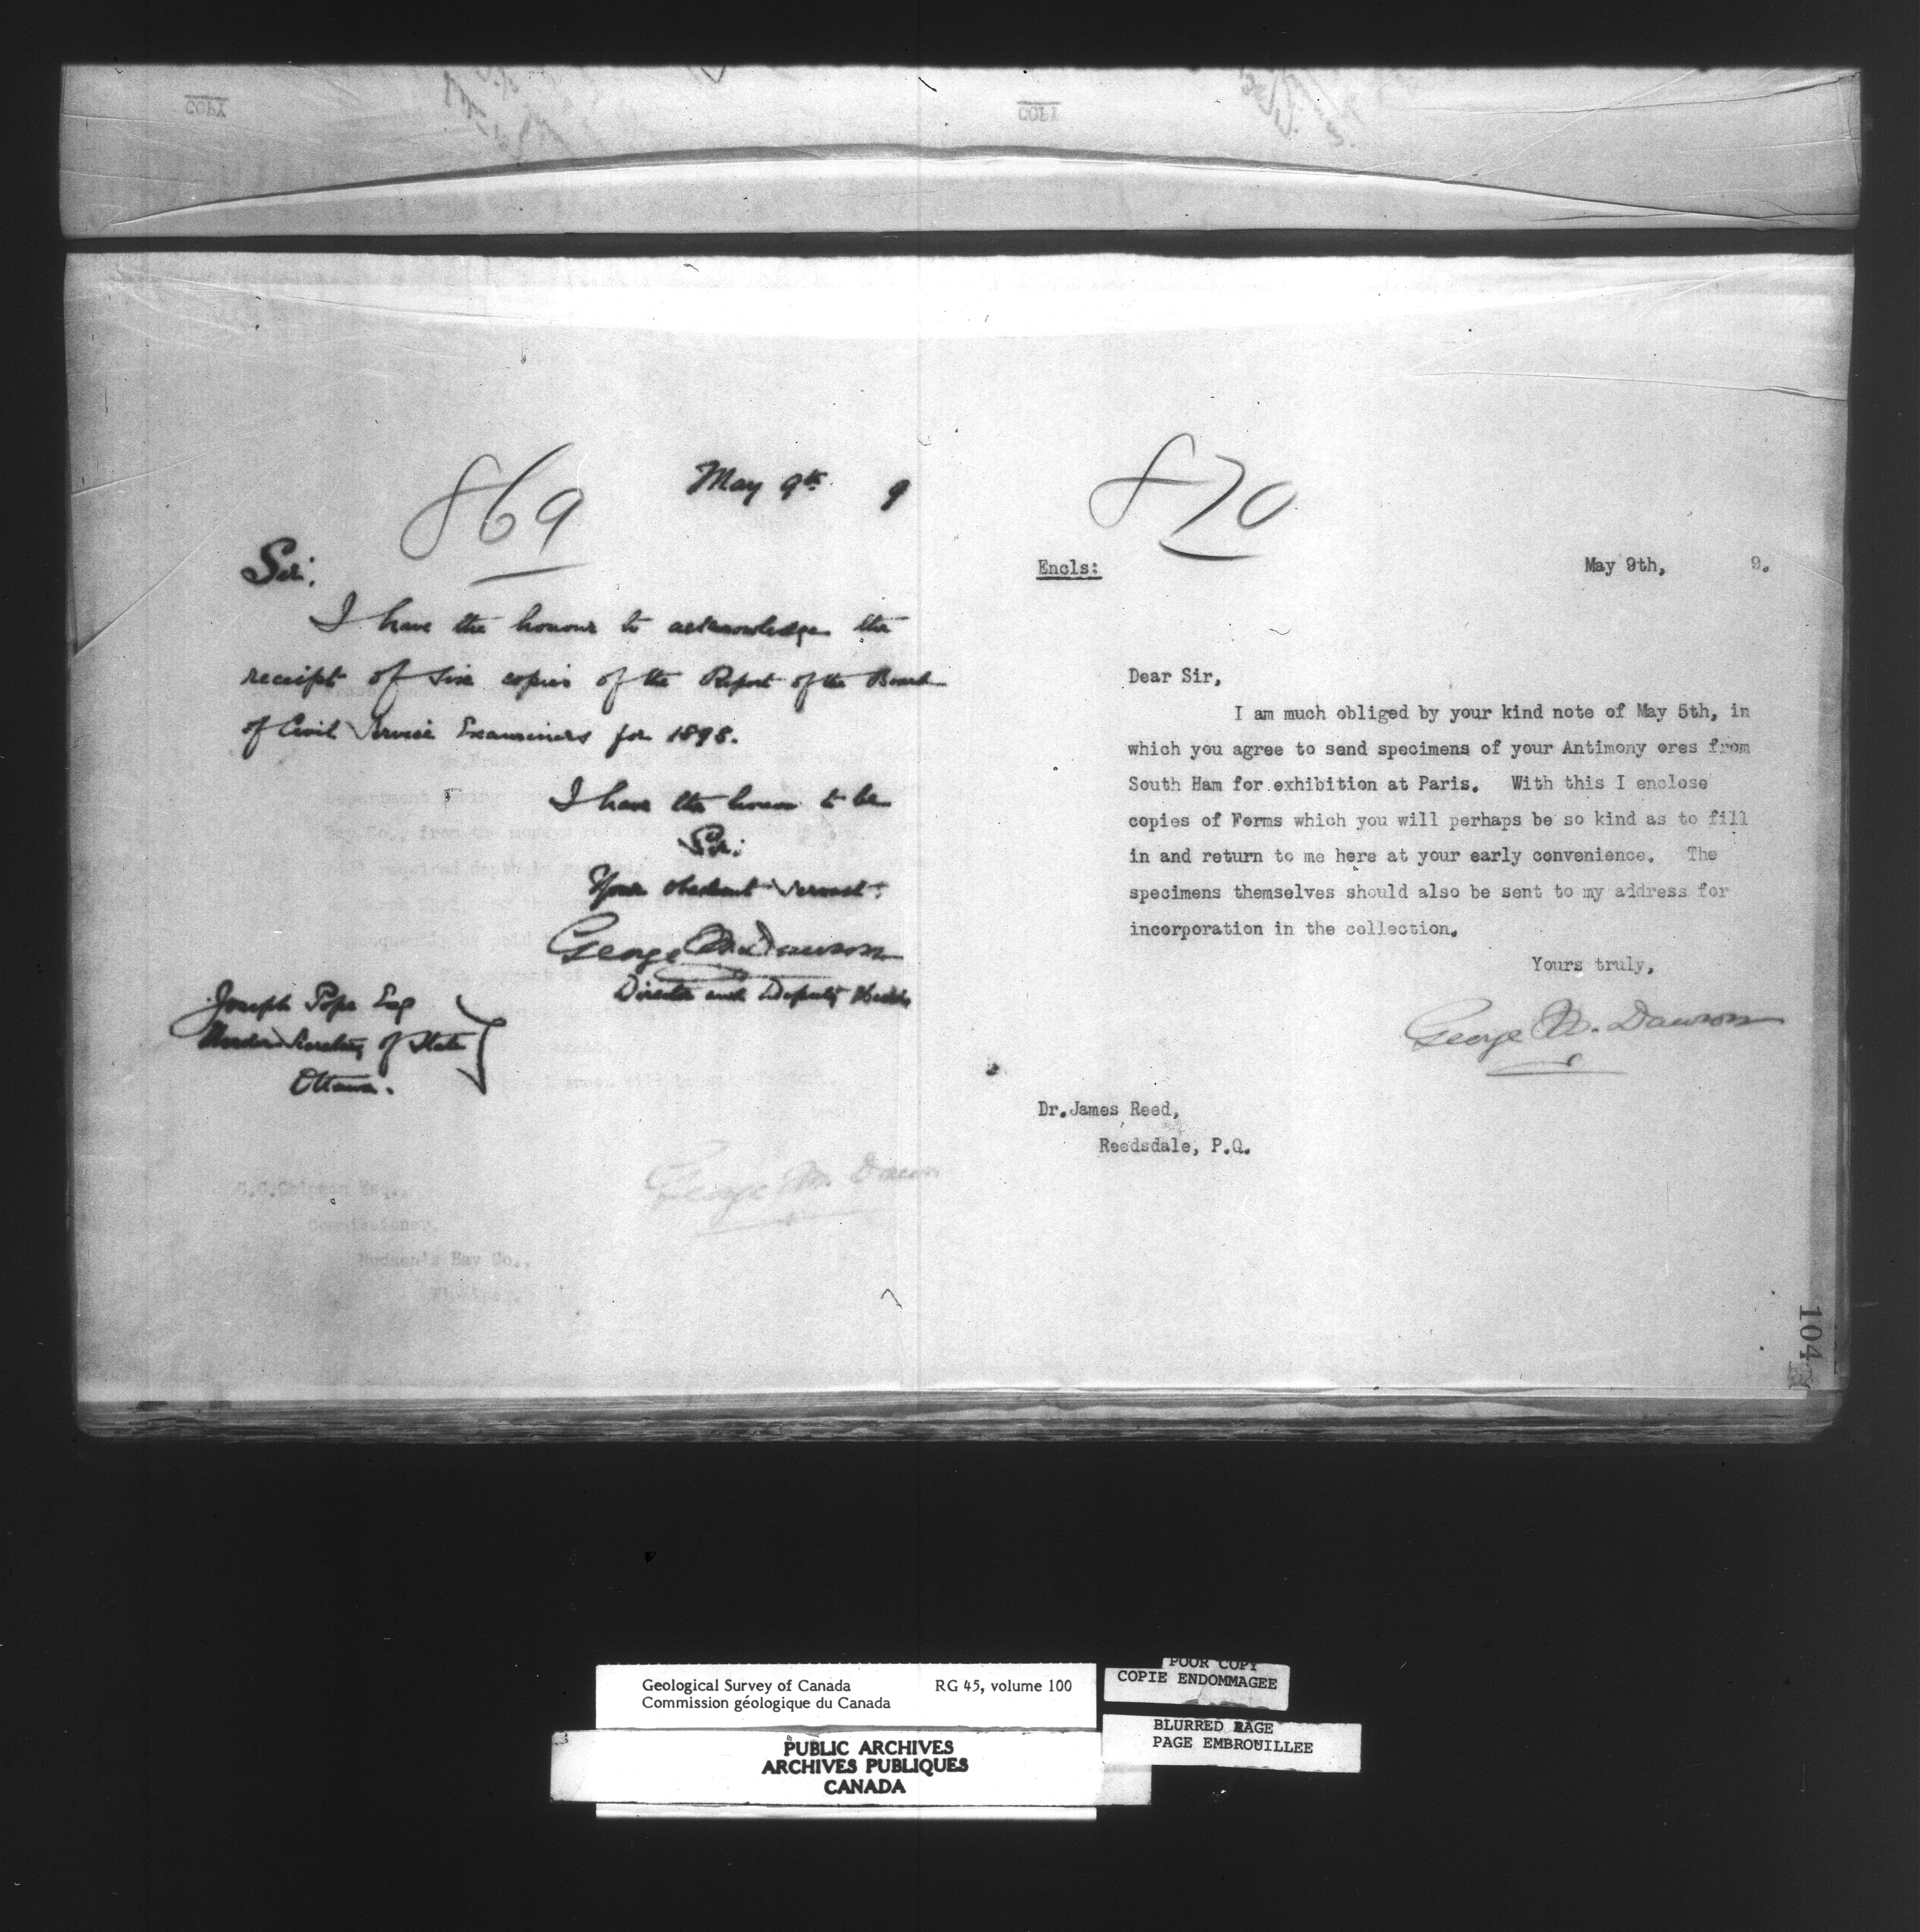 COPY
COPY
869
May 9th 9
Sir.
I have the honour to acknowledge the
receipt of six copies of the Report of the Board
of Civil Service Examiners for 1898.
I have the honour to be
Sir.
Your obedient servant.
George M. Dawson
Director and Deputy Head
Joseph Pope Esq
Under Secretary of State
Ottawa.
George M. Dawson
Commissioner,
Hudson's Bay Co.,
870
Encls: May 9th, 9.
Dear Sir,
I am much obliged by your kind note of May 5th, in
which you agree to send specimens of your Antimony ores from
South Ham for exhibition at Paris. With this I enclose
copies of Forms which you will perhaps be so kind as to fill
in and return to me here at your early convenience. The
specimens themselves should also be sent to my address for
incorporation in the collection.
Yours truly,
George M. Dawson
Dr.James Reed,
Reedsdale, P.Q.
104
Geological Survey of Canada RG 45, volume 100
Commission géologique du Canada
PUBLIC ARCHIVES
ARCHIVES PUBLIQUES
CANADA
POOR COPY
COPIE ENDOMMAGEE
BLURRED PAGE
PAGE EMBROUILLEE